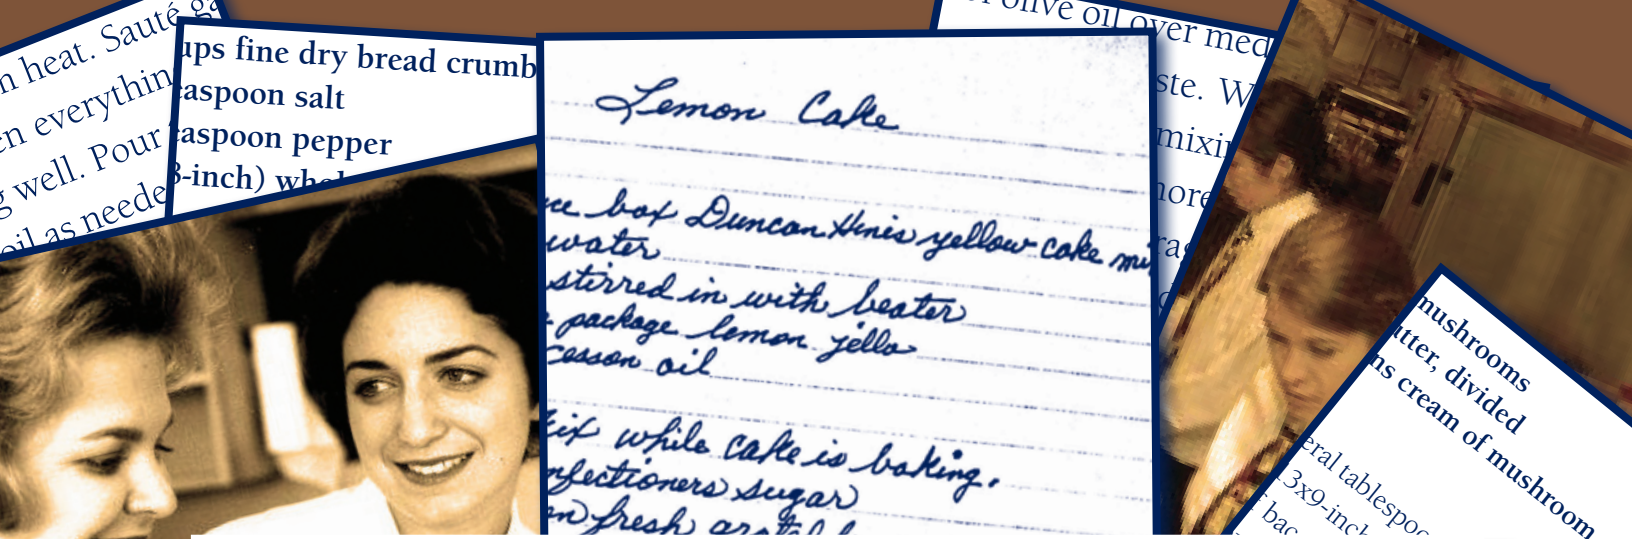 heat. Sauté
everything
well. Pour
oil as neede
ups fine dry bread crumb
easpoon salt
easpoon pepper
-inch)
Lemon Cake
box Duncan Hines yellow cake mi
water
stirred in with beater
package lemon jello
cesson oil
ix while cake is baking.
nfectioners sugar
fresh grated
olive oil over med
ste. W
mixi
ore
mushrooms
utter, divided
ns cream of mushroom
eral tablespoo
13x9-inch
bac